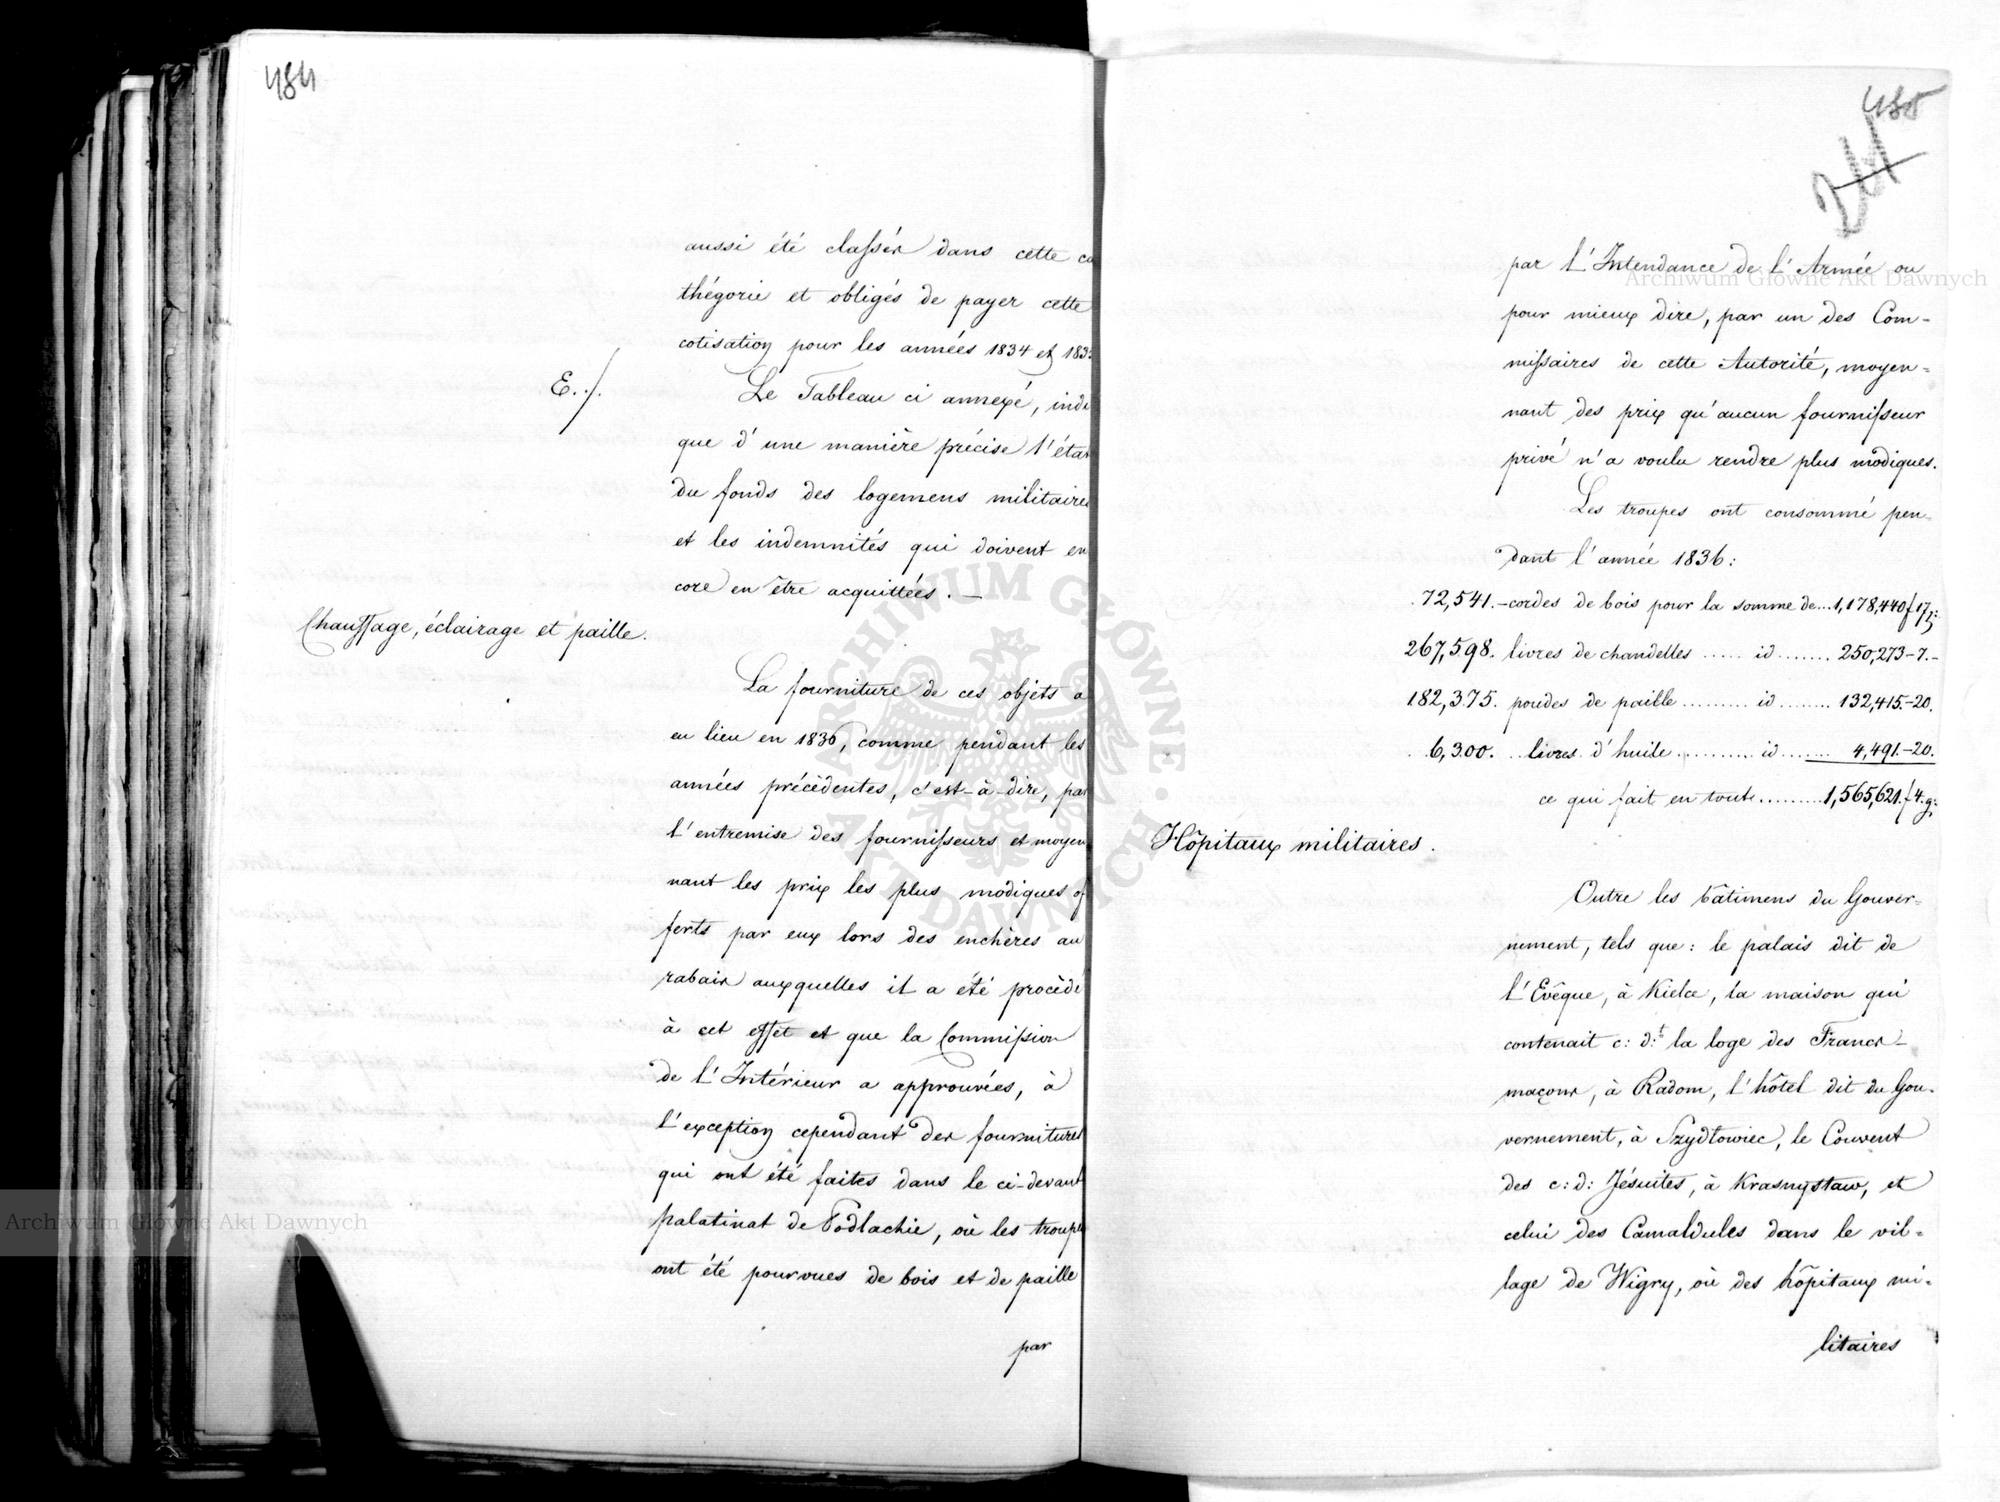 484
aussi été classés dans cette ca
thégorie et obligés de payer cette
cotisation pour les années 1834 et 183
E. ./.
Le Tableau ci annexé, indi
que d'une manière précise l'état
du fonds des logemens militaires
et les indemnités qui doivent en
core en être acquittées. —
Chauffage, éclairage et paille.
La fourniture de ces objets a
eu lieu en 1836, comme pendant les
années précédentes, c'est-à-dire, par
l'entremise des fournisseurs et moyen
nant les prix les plus modiques of
ferts par eux lors des enchères au
rabais auxquelles il a été procédé
à cet effet et que la Commission
de l'Intérieur a approuvées, à
l'exception cependant des fournitures
qui ont été faites dans le ci-devant
palatinat de Podlachie, où les troupes
ont été pourvues de bois et de paille
par
485
241
par l'Intendance de l'Armée ou
pour mieux dire, par un des Com=
missaires de cette Autorité, moyen=
nant des prix qu'aucun fournisseur
privé n'a voulu rendre plus modiques.
Les troupes ont consommé pen=
dant l'année 1836:
72,541.-cordes de bois pour la somme de...1,178,440 f 17 g:
267,598. livres de chandelles ..... id ....... 250,273-7.-
182,375. poudes de paille ......... id ....... 132,415.-20.
6,300. ..livres d'huile ........... id ...... 4,491.-20.
ce qui fait en tout ......... 1,565,621. f 4. g:
Hôpitaux militaires.
Outre les bâtimens du Gouver=
nement, tels que: le palais dit de
l'Evêque, à Kielce, la maison qui
contenait c: d:t la loge des Francs-
maçons, à Radom, l'hôtel dit du Gou=
vernement, à Szydłowiec, le Couvent
des c: d: Jésuites, à Krasnystaw, et
celui des Camaldules dans le vil=
lage de Wigry, où des hôpitaux mi=
litaires
Archiwum Główne Akt Dawnych
Archiwum Główne Akt Dawnych
ARCHIWUM GŁÓWNE • AKT DAWNYCH •